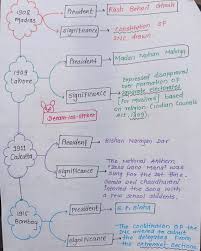 1908
Madras
President
Rash Behari Ghosh
Significance
Constitution of
INC drawn
1909
Lahore
President
Madan Mohan Malaviya
Significance
Expressed disapproval
over formation of
separate electorates
(for Muslims) based
on religion (Indian Councils
Act, 1909)
1911
Calcutta
President
Bishan Narayan Dar
Significance
The National Anthem
'Jana Gana Mana' was
sung for the 1st time.
Sarala Devi Chaudhurani
the song with a
few school students.
1912
Bombay
President
Significance
The constitution of the
INC altered to admit
the delegates from the
extremist sections